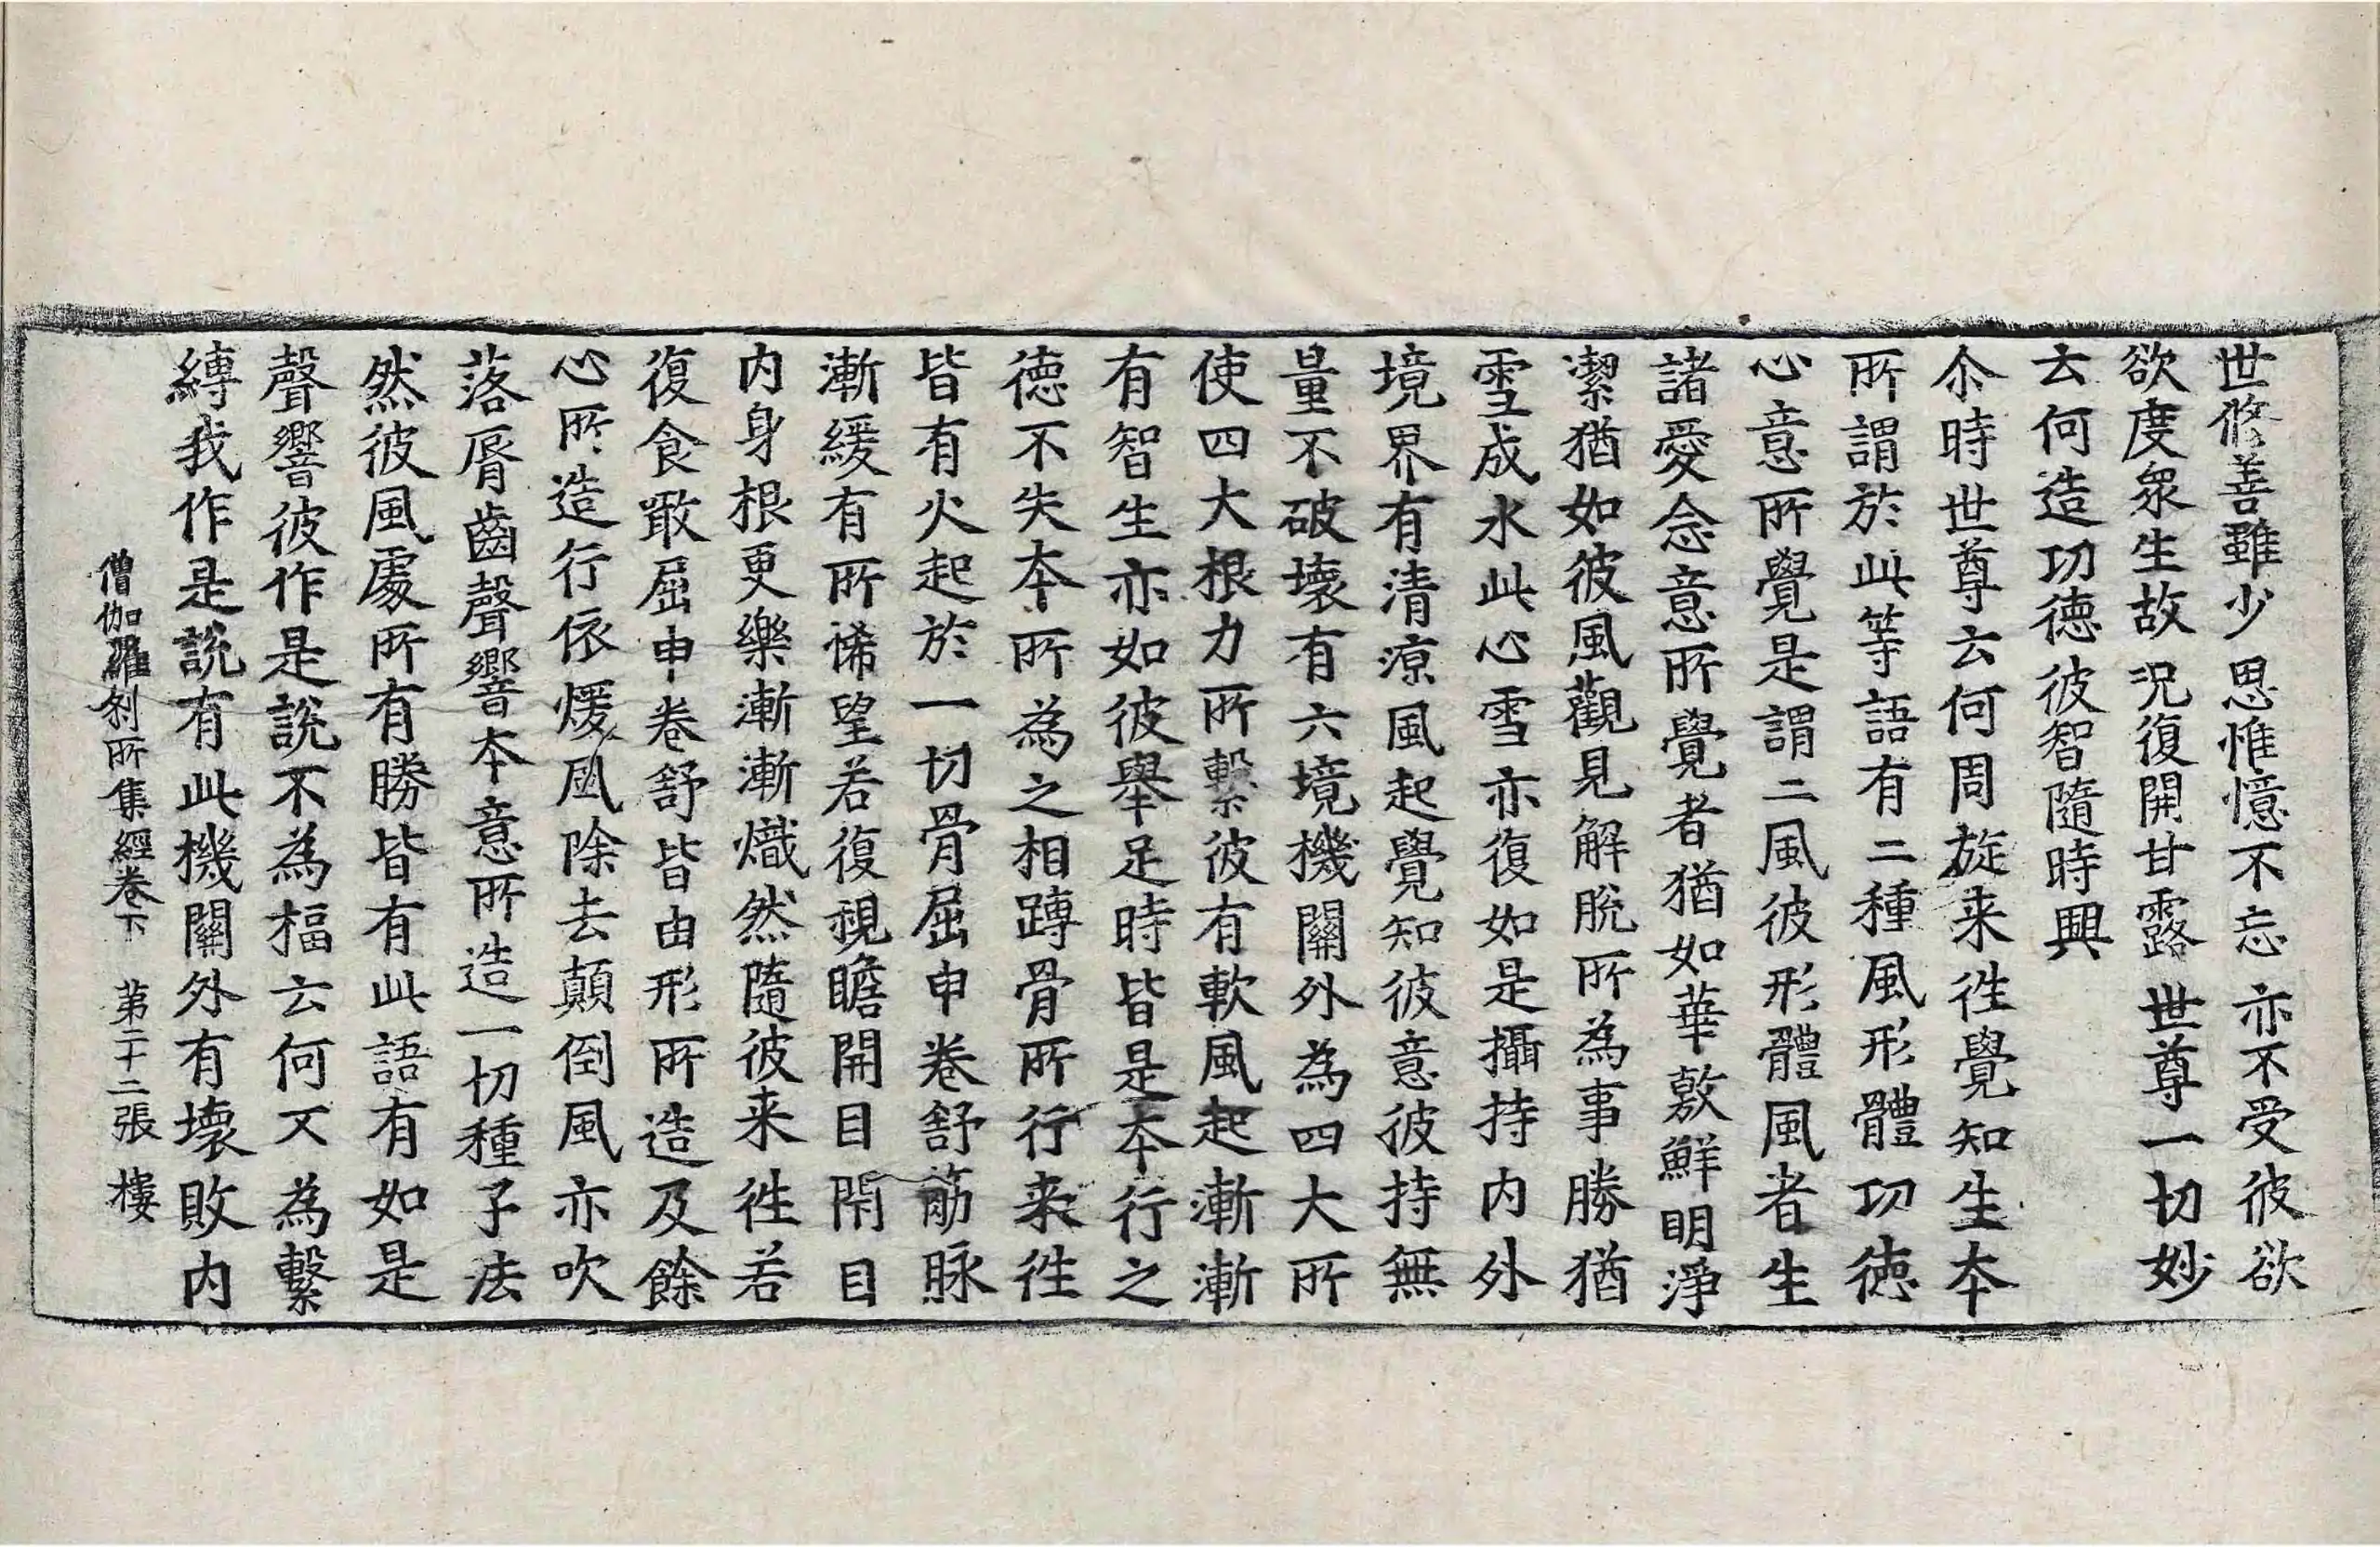 世修善雖少 思惟憶不忘 亦不受彼欲
欲度衆生故 況復開甘露 世尊一切妙
云何造功德 彼智隨時興
尒時世尊云何周旋来徃覺知生夲
所謂於此等語有二種風形體功德
心意所覺是謂二風彼形體風者生
諸愛念意所覺者猶如華敷鮮明淨
潔猶如彼風觀見解脫所為事勝猶
雪成水此心雪亦復如是攝持内外
境界有清凉風起覺知彼意彼持無
量不破壞有六境機關外為四大所
使四大根力所繫彼有軟風起漸漸
有智生亦如彼舉足時皆是夲行之
德不失夲所為之相蹲骨所行来徃
皆有火起於一切骨屈申卷舒筋脉
漸緩有所悕望若復視瞻開目閇目
内身根更樂漸漸熾然隨彼来徃若
復食噉屈申卷舒皆由形所造及餘
心所造行依煖風除去顛倒風亦吹
落脣齒聲響本意所造一切種子法
然彼風處所有勝皆有此語有如是
聲響彼作是說不為楅云何又為繫
縛我作是說有此機關外有壞敗内
僧伽羅刹所集經卷下 第二十二張 樓